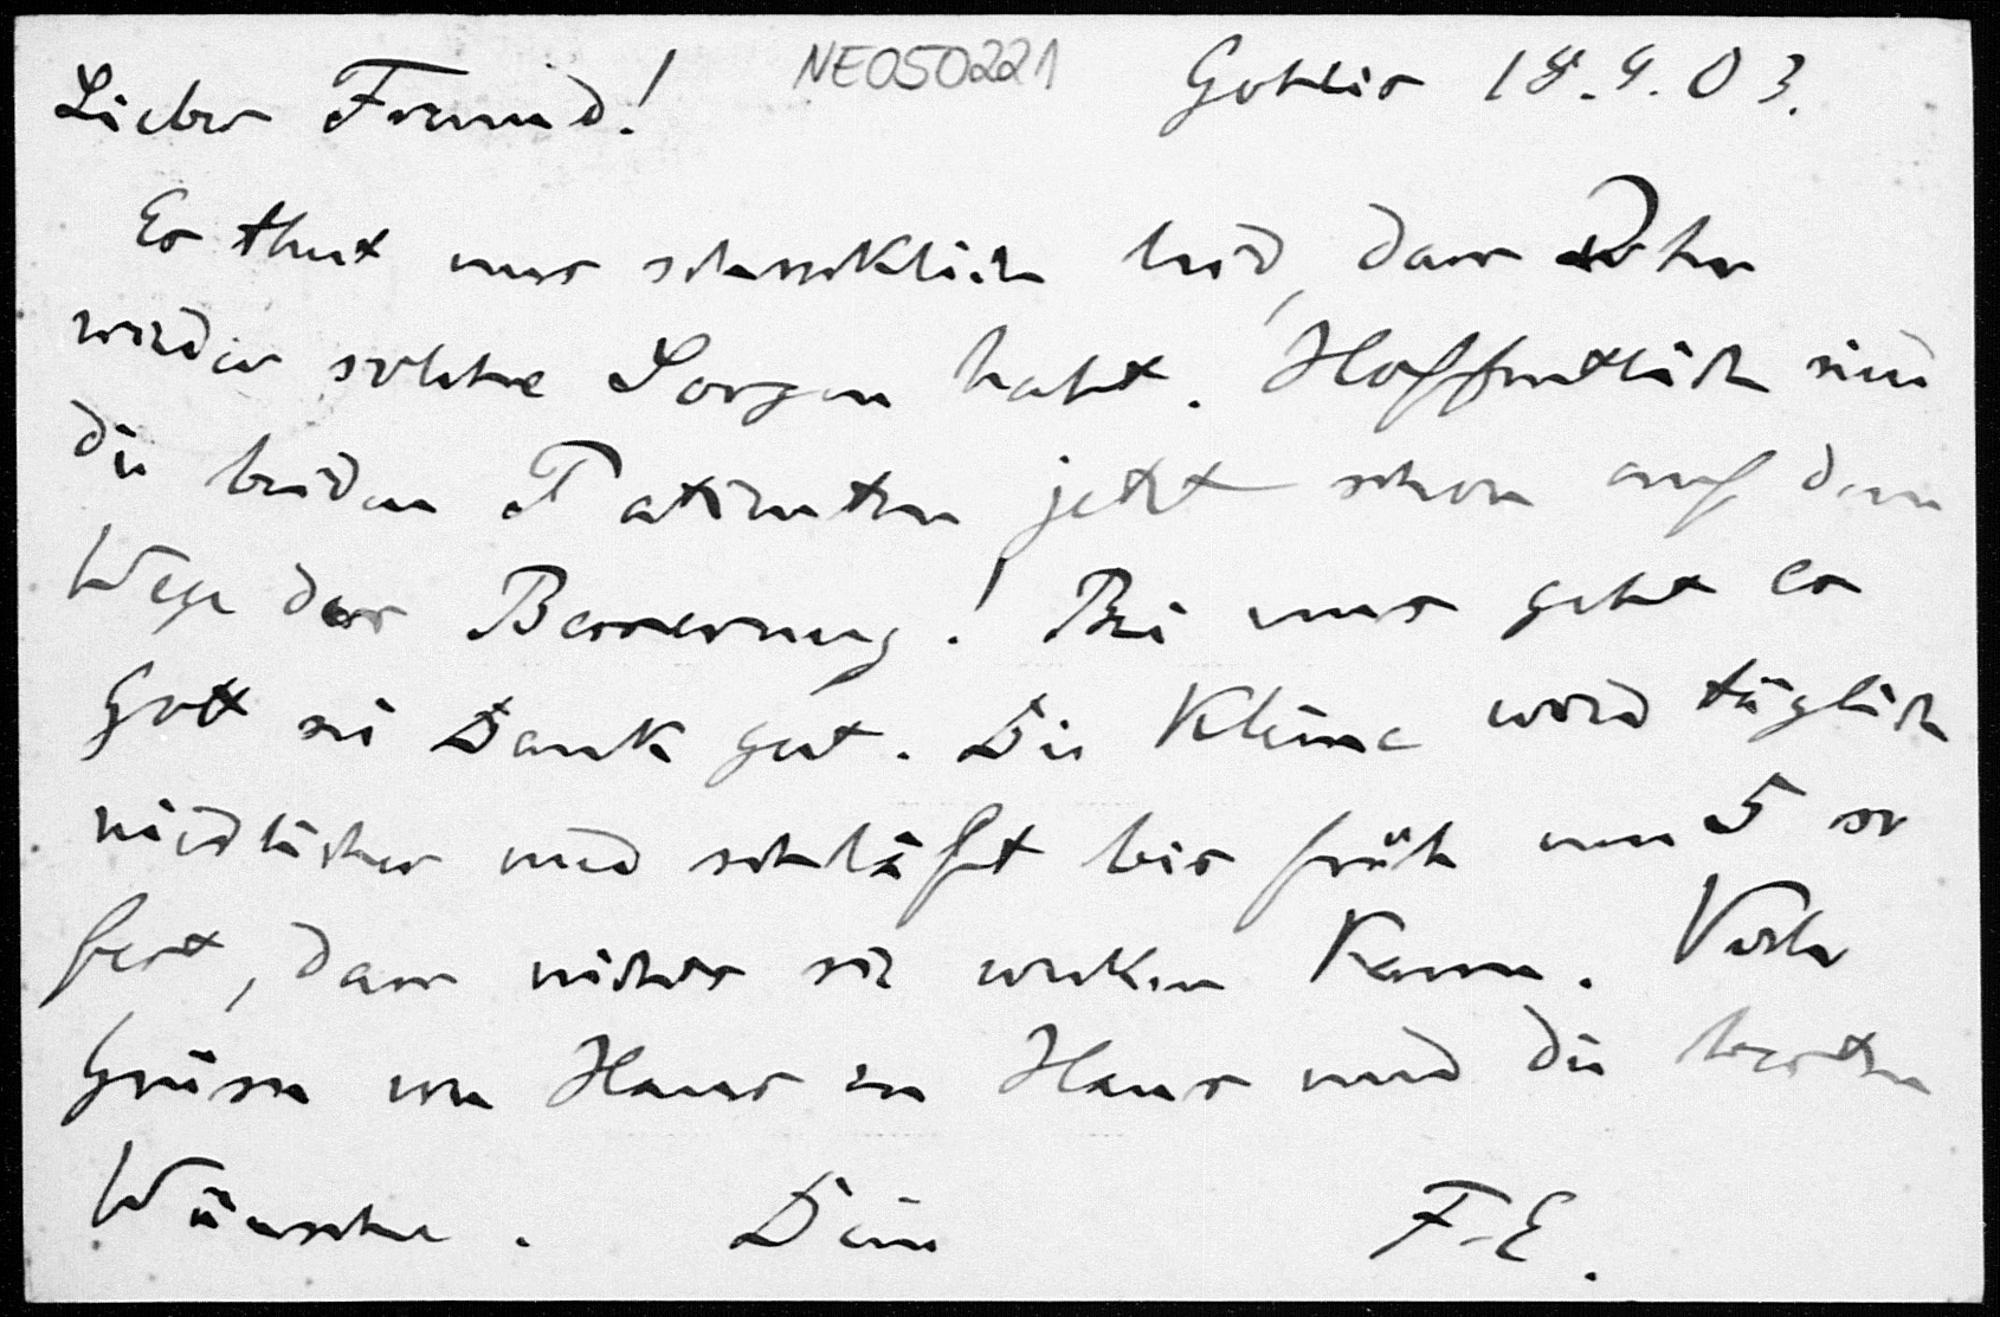 NE050221
Gohlis 18.4.03.
Lieber Freund!
Es thut uns schrecklich leid, dass Ihr
wieder solche Sorgen habt. Hoffentlich sind
die beiden Patienten jetzt schon auf dem
Wege der Besserung! Bei uns geht es
Gott sei Dank gut. Die Kleine wird täglich
niedlicher und schläft bis früh um 5 so
fest, dass nichts sie wecken kann. Viele
Grüsse von Haus zu Haus und die besten
Wünsche. Dein F. E.